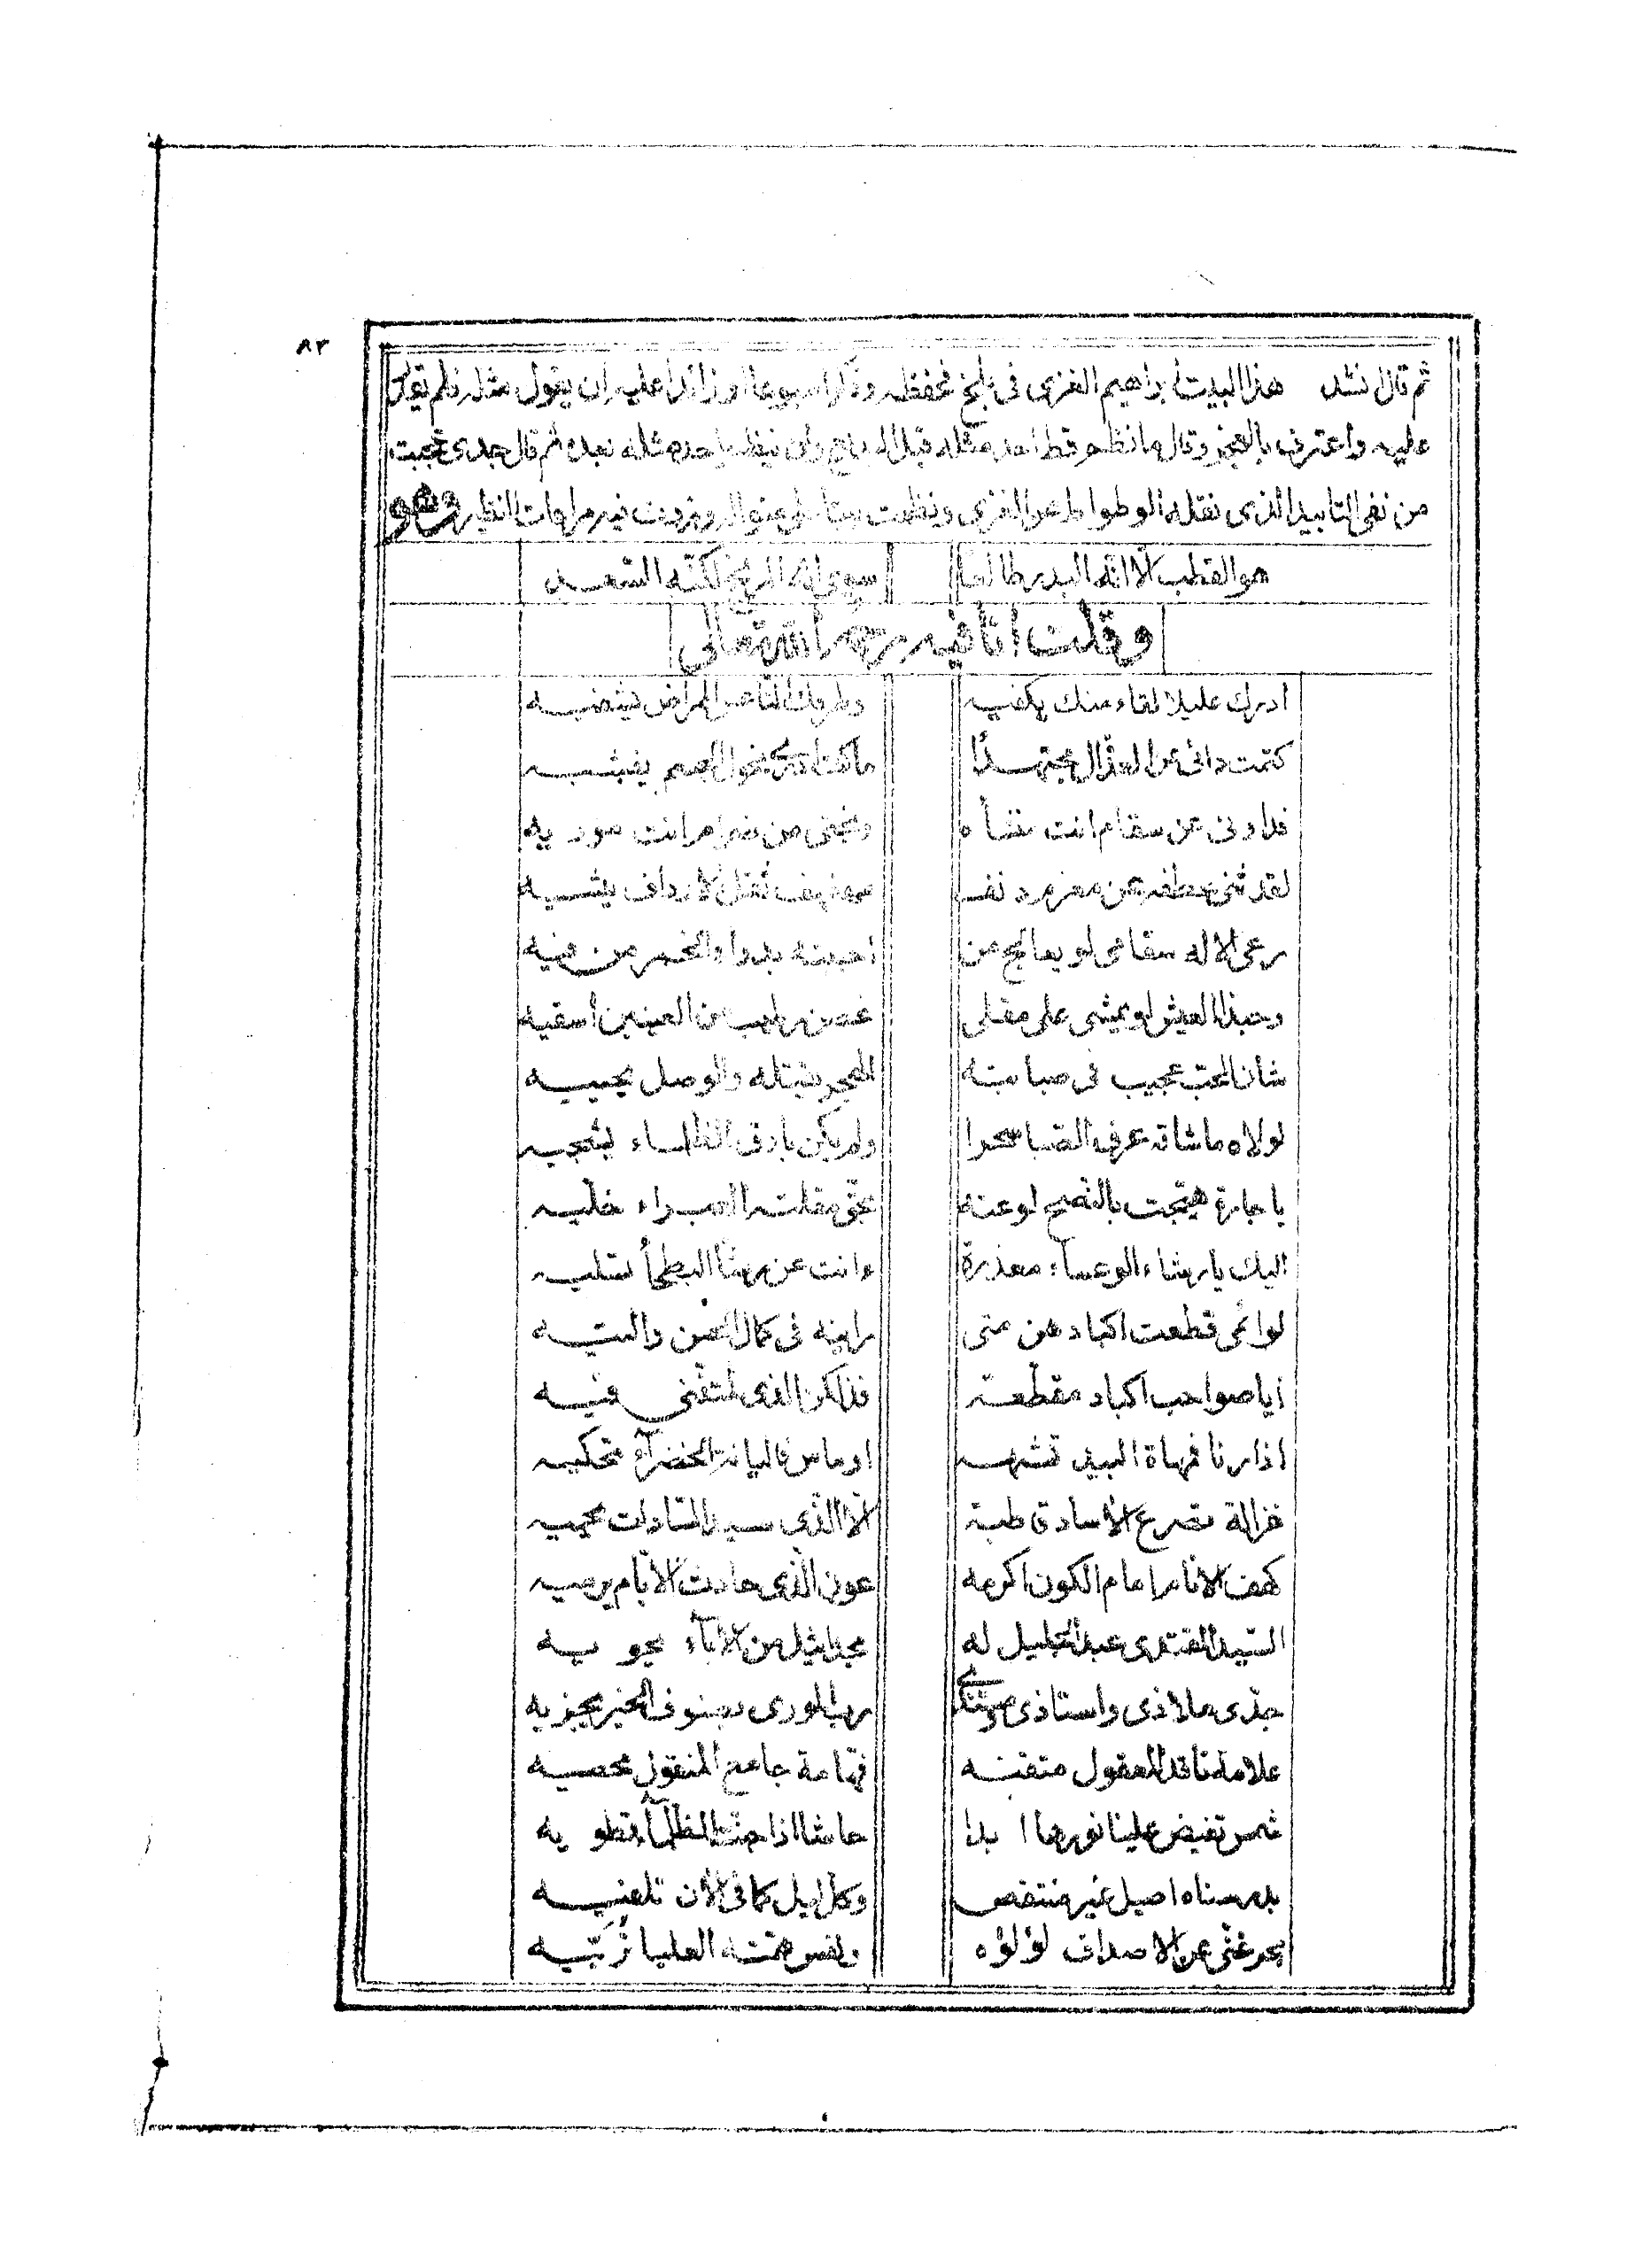 ٨٣
ثم قال نشد هذا البيت ابراهيم الغزى فى بلخ فحفظه وذكر اسبوعا او زائدا عليه ان يقول مثله فلم يقدر
عليه واعترف بالعجز وقال ما نظم قط احد مثله قبله ان ينظم احد مثله بعده ثم قال جدى عجبت
من نفى التابيد الذى نقله الوطواط عن الغزى ونظمت بيتا على منواله وزدت فيه مراعات النظير وهو
هو القطب الا انه البدر طالعا سوى انه المريخ لكنه السعد
وقلت انا فيه رحمه الله تعالى
ادرك عليلا لقاء منك يكفيه وطرفك الناعس الممراض يشفيه
كتمت دائى عن العذال مجتهدًا ما كنت ادرى نحول الجسم يفشيه
فداونى عن سقام انت منشأه ونجنى من ضرام انت موريه
لقد ثنى عطفه عن مغرم دنف مهفهف ثقل الارداف يثنيه
رعى الاله سقامى لو يعالج من احببته بدواء الخمر من فيه
وحبذا العيش لو يمشى على مقلى غصن رطيب من العينين أسقيه
شان المحب عجيب فى صبابته الهجر يقتله والوصل يحييه
لولاه ما شاقه عرف الصبا سحرا ولم يكن بارق الظلماء يشجيه
يا جارة هيّجت بالنصح لوعته بحق مقلته العبراء خلّيه
اليك يا رشاء الوعسآء معذرة وانت عن رشأ البطحاء تسليه
لوائمى قطعت اكبادهن متى راينه فى كمال الحسن والتيه
أيا صواحب اكباد مقطّعة فذلكن الذى لمتننى فيه
اذا رنا فمهاة البيد تشبهه او ماس فالبانة الخضرآء تحكيه
غزالة تصرع الأساد قاطبة الا الذى سيد السادات يحميه
كهف الانام امام الكون اكرمه عون الذى حادث الأيام يرميه
السيد المقتدى عبد الجليل له مجد اثيل من الآباء يحويه
جدّى ملاذى واستاذى رب الورى بصنوف الخير يجزيه
علامة ناقد المعقول متقنه فهّامة جامع المنقول محصيه
شمس تفيض علينا نورها ابدا حاشا اذا جنت الظلمآء تطويه
بدر سناه اصيل غير منتقص وكل ليل كما فى الآن تلفيه
بحر غنى عن الاصداف لؤلؤه ونفس همّته العليا تُربّيه